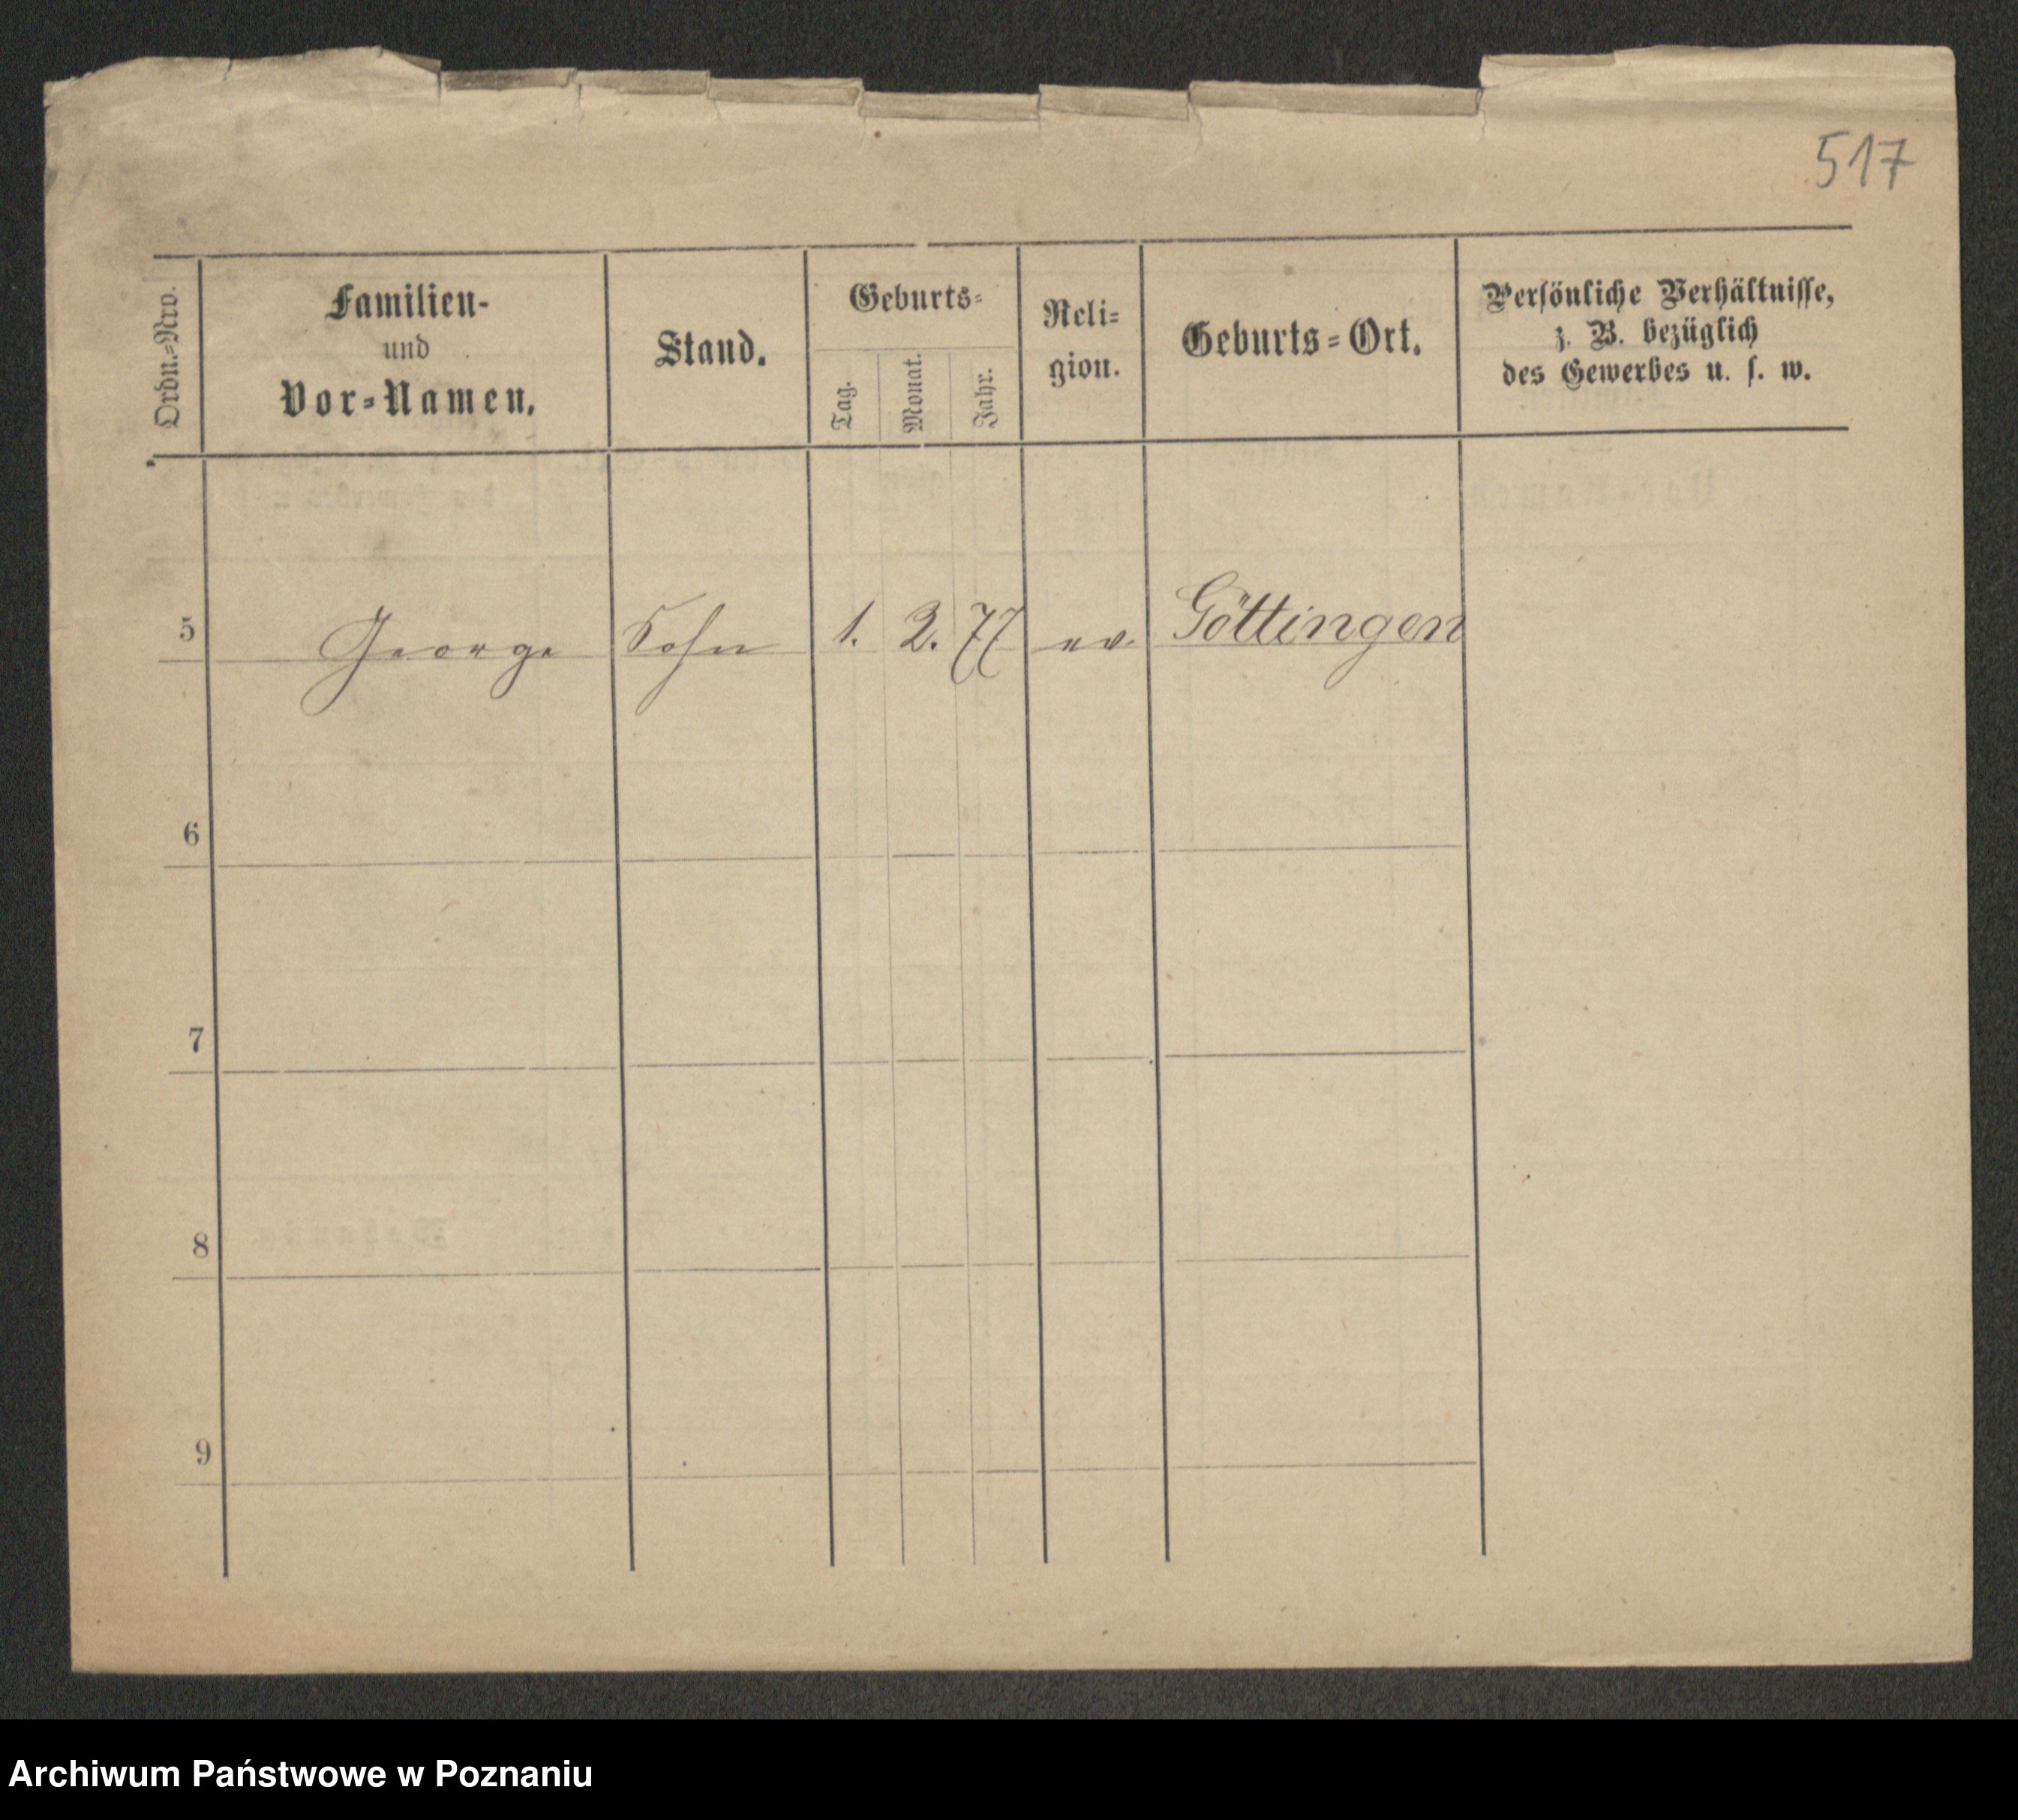 517
Ordn.-Nro.
Familien-
und
Vor-Namen.
Stand.
Geburts-
Tag.
Monat.
Jahr.
Reli-
gion.
Geburts-Ort.
Persönliche Verhältnisse,
z. B. bezüglich
des Gewerbes u. s. w.
5 George Sohn 1. 2. 77 ev. Göttingen
6
7
8
9
Archiwum Państwowe w Poznaniu